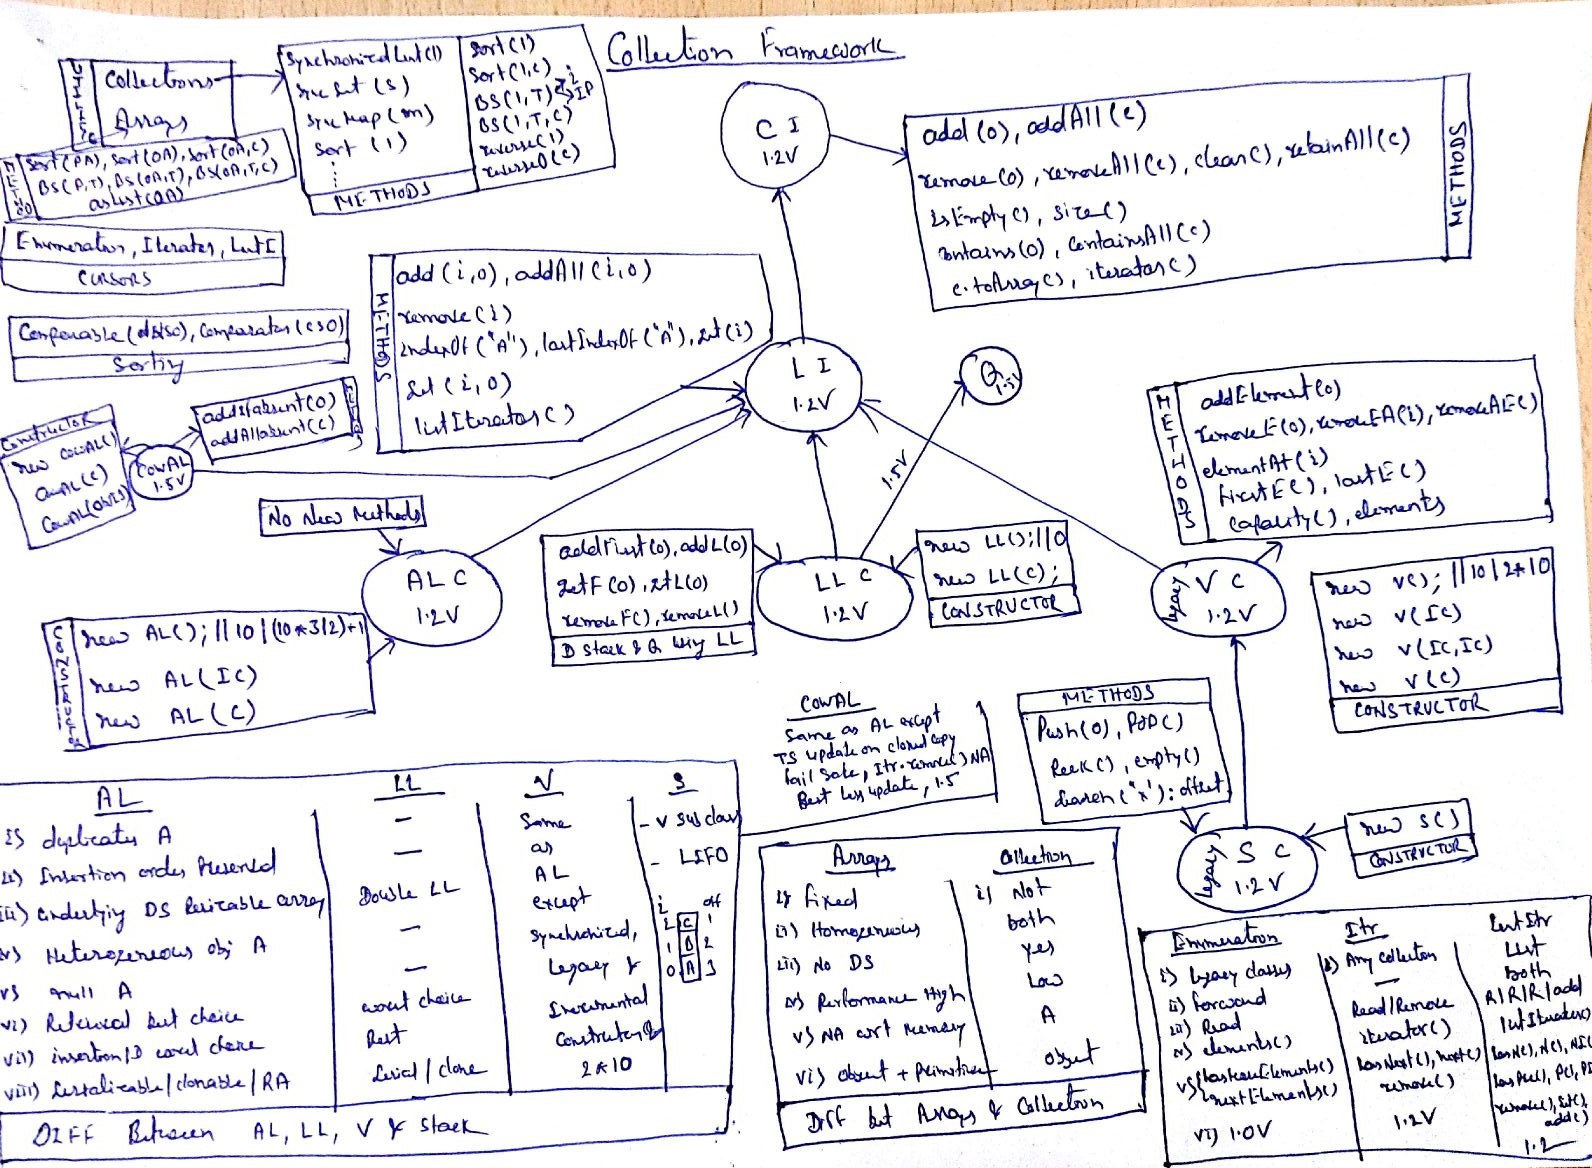 Collection Framework
UTILITY
Collections
Arrays
SynchronizedList(l)
Sync Set (S)
Sync Map (m)
Sort (l)
METHODS
Sort(l)
Sort(l,c)
BS(l,T) → i
→ IP
BS(l,T,C)
reverse(l)
reverseO(c)
METHOD
Sort(PA), Sort(OA), Sort(OA,C)
BS(P,T), BS(OA,T), BS(OA,T,C)
asList(OA)
Enumeration, Iterator, ListI
CURSORS
Comparable(dNSO), Comparator(CSO)
Sorting
C I
1.2V
METHODS
add(o), addAll(c)
remove(o), removeAll(c), clear(), retainAll(c)
isEmpty(), size()
contains(o), containsAll(c)
c.toArray(), iterator()
METHODS
add(i,o), addAll(i,o)
remove(i)
indexOf("A"), lastIndexOf("A"), get(i)
Set(i,o)
listIterator()
L I
1.2V
Q
1.5V
1.5V
CONSTRUCTOR
new COWAL()
COWAL(C)
COWAL(Obj[])
COWAL
1.5V
addIfabsent(o)
addAllabsent(c)
No New Methods
AL C
1.2V
CONSTRUCTOR
new AL(); || 10 | (10*3/2)+1
new AL(IC)
new AL(C)
addFirst(o), addL(o)
getF(o), getL(o)
removeF(), removeL()
D Stack & Q Using LL
LL C
1.2V
new LL(); ||0
new LL(C);
CONSTRUCTOR
METHODS
addElement(o)
removeE(o), removeEA(i), removeAE()
elementAt(i)
firstE(), lastE()
capacity(), elements
Legacy
V C
1.2V
new V(); ||10|2*10
new V(IC)
new V(IC,IC)
new V(C)
CONSTRUCTOR
METHODS
Push(o), POP()
Peek(), empty()
Search("x"): offset
Legacy
S C
1.2V
new S()
CONSTRUCTOR
COWAL
Same as AL except
TS update on cloned copy
fail Safe, Itr.remove() NA
Best less update, 1.5
AL LL V S
i) duplicates A — Same - V Sub class
ii) Insertion order Preserved — as - LIFO
AL
iii) Underlying DS Resizable array Double LL except i off
iv) Heterogeneous obj A — Synchronized, 2 C 1
v) null A — Legacy & 1 B 2
0 A 3
vi) Retrieval best choice worst choice Incremental
vii) insertion/D worst choice Best Constructor
viii) Serializable/clonable/RA Serial/clone 2*10
DIFF Between AL, LL, V & Stack
Arrays Collection
i) fixed i) Not
ii) Homogeneous both
iii) No DS Yes
iv) Performance High Low
v) NA wrt Memory A
vi) Object + Primitive Object
Diff bet Arrays & Collection
Enumeration Itr List Itr
i) legacy classes i) Any collection List
ii) forward — Both
iii) Read Read/Remove R/R/R/add
iv) elements() iterator() listIterator()
v) hasMoreElements() hasNext(), next() hasN(), N(), NI()
nextElements() remove() hasPre(), P(), PI
remove(), Set(),
add()
vi) 1.0V 1.2V 1.2